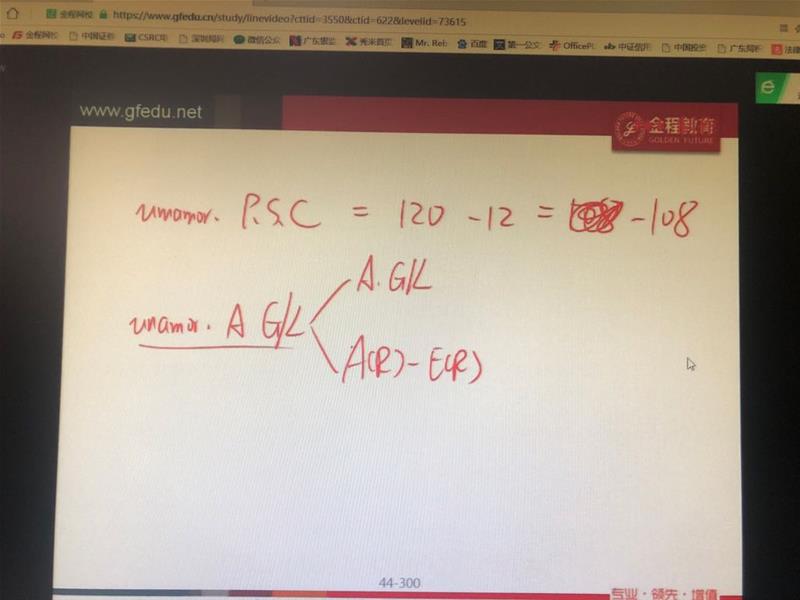 金程网校 https://www.gfedu.cn/study/linevideo?cttid=3550&ctid=622&levelid=73615
金程网校 中国证券 CSRC电 深圳局网 微信公众 广东银监 秀米首页 Mr. Reb 百度 第一公文 OfficePL 中证信用 中国投资 广东局积 法律
www.gfedu.net
金程教育
GOLDEN FUTURE
unamor. P.S.C = 120 -12 = -108
A.G/L
unamor. A G/L
A(R)-E(R)
44-300
专业·领先·增值